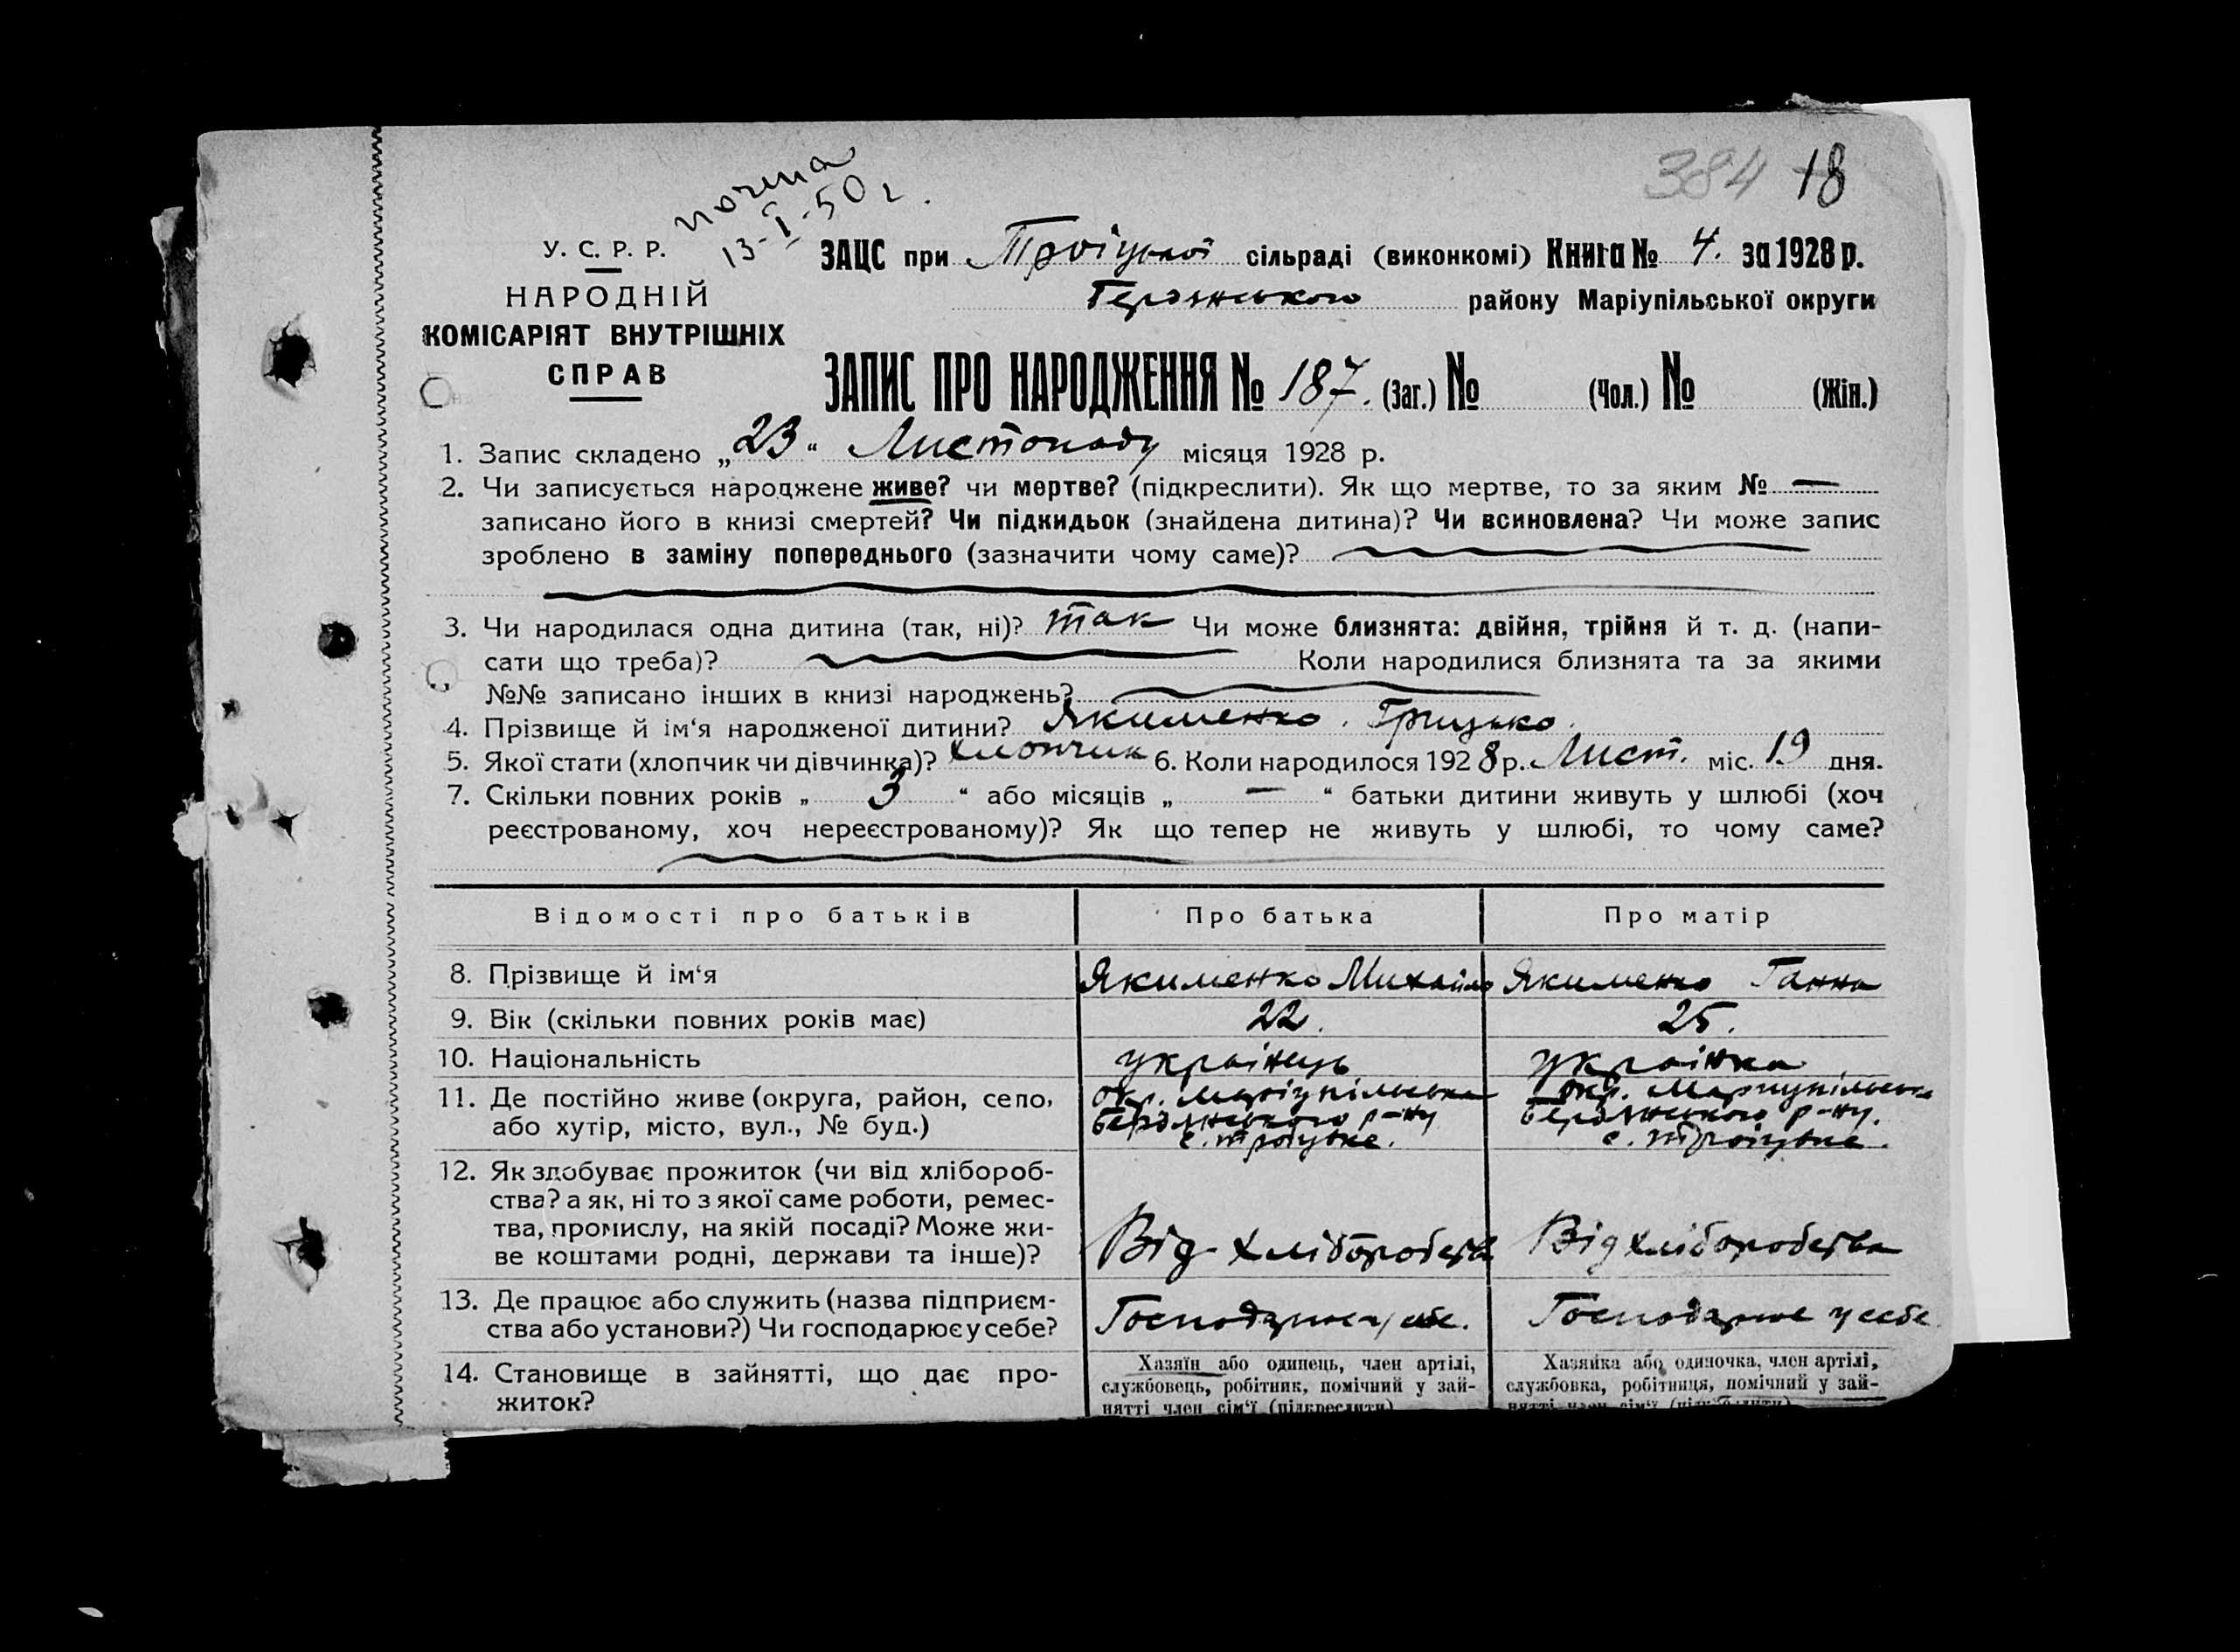 384 18
13-I-50 г.
У. С. Р. Р.
НАРОДНІЙ
КОМІСАРІЯТ ВНУТРІШНІХ
СПРАВ
ЗАЦС при Троіцької сільраді (виконкомі) Книга № 4. за 1928 р.
Бердянського району Маріупільської округи
ЗАПИС ПРО НАРОДЖЕННЯ № 187. (Заг.) № (Чол.) № (Жін.)
1. Запис складено „23“ Листопаду місяця 1928 р.
2. Чи записується народжене живе? чи мертве? (підкреслити). Як що мертве, то за яким № —
записано його в книзі смертей? Чи підкидьок (знайдена дитина)? Чи всиновлена? Чи може запис
зроблено в заміну попереднього (зазначити чому саме)?
3. Чи народилася одна дитина (так, ні)? так Чи може близнята: двійня, трійня й т. д. (напи-
сати що треба)? Коли народилися близнята та за якими
№№ записано інших в книзі народжень?
4. Прізвище й ім‘я народженої дитини? Якименко. Грицько.
5. Якої стати (хлопчик чи дівчинка)? хлопчик 6. Коли народилося 1928 р. Лист. міс. 19 дня.
7. Скільки повних років „ 3 “ або місяців „ — “ батьки дитини живуть у шлюбі (хоч
реєстрованому, хоч нереєстрованому)? Як що тепер не живуть у шлюбі, то чому саме?
Відомості про батьків Про батька Про матір
8. Прізвище й ім‘я Якименко Михайло Якименко Ганна
9. Вік (скільки повних років має) 22. 25.
10. Національність українець українка
11. Де постійно живе (округа, район, село, окр. Маріупільська окр. Маріупільська
або хутір, місто, вул., № буд.) Бердянського р-ну Бердянського р-ну.
с. Троіцьке. с. Троіцьке.
12. Як здобуває прожиток (чи від хлібороб-
ства? а як, ні то з якої саме роботи, ремес-
тва, промислу, на якій посаді? Може жи-
ве коштами родні, держави та інше)? Від хліборобства Від хліборобства
13. Де працює або служить (назва підприєм-
ства або установи?) Чи господарює у себе? Господарює у себе. Господарює у себе
14. Становище в зайнятті, що дає про-
житок?
Хазяїн або одинець, член артілі,
службовець, робітник, помічний у зай-
нятті член сім‘ї (підкреслити)
Хазяйка або одиночка, член артілі,
службовка, робітниця, помічний у зай-
нятті член сім‘ї (підкреслити)